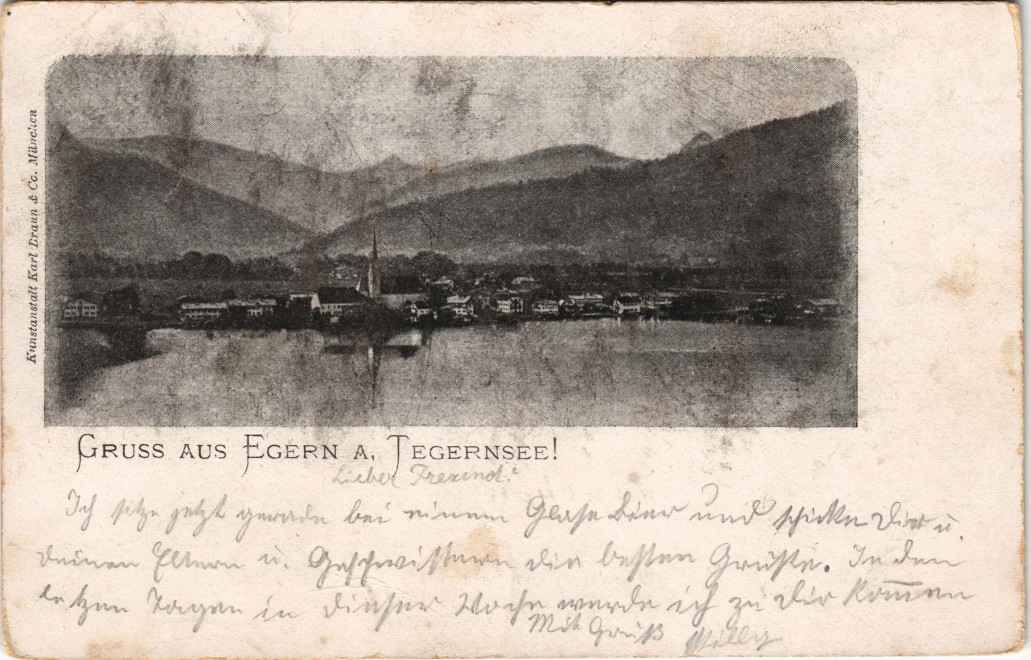 Kunstanstalt Karl Braun & Co. München
GRUSS AUS EGERN A, TEGERNSEE!
Lieber Freund!
Ich sitze jetzt gerade bei einem Glase Bier und schicke Dir u.
deinen Eltern u. Geschwistern die besten Grüße. In den
letzten Tagen in dieser Woche werde ich zu dir kommen
Mit Gruß Willy